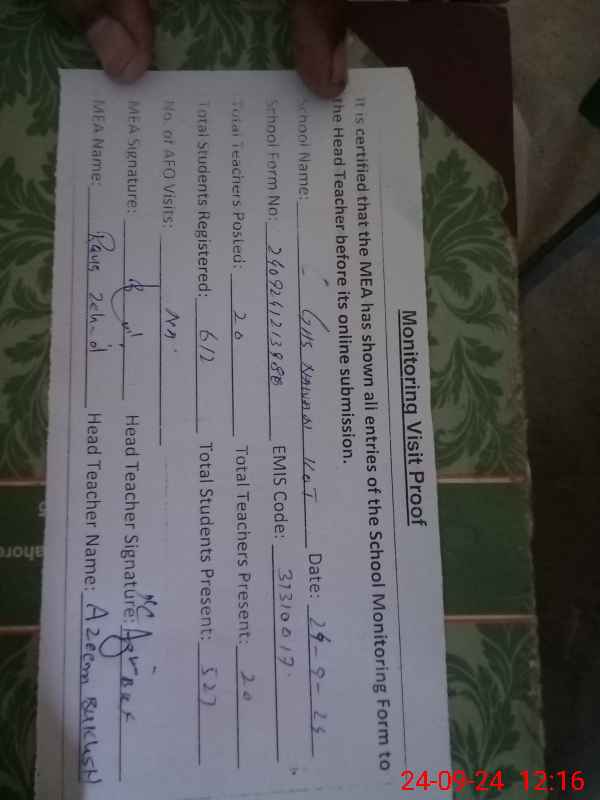 Monitoring Visit Proof
It is certified that the MEA has shown all entries of the School Monitoring Form to
the Head Teacher before its online submission.
School Name: GHS NAWAN KOT Date: 24-9-24
School Form No: EMIS Code: 31310017
Total Teachers Posted: 20 Total Teachers Present: 20
Total Students Registered: 612 Total Students Present: 527
No. of AFO Visits:
MEA Signature: Head Teacher Signature:
MEA Name: Head Teacher Name: Azeem Bukhsh
24-09-24 12:16